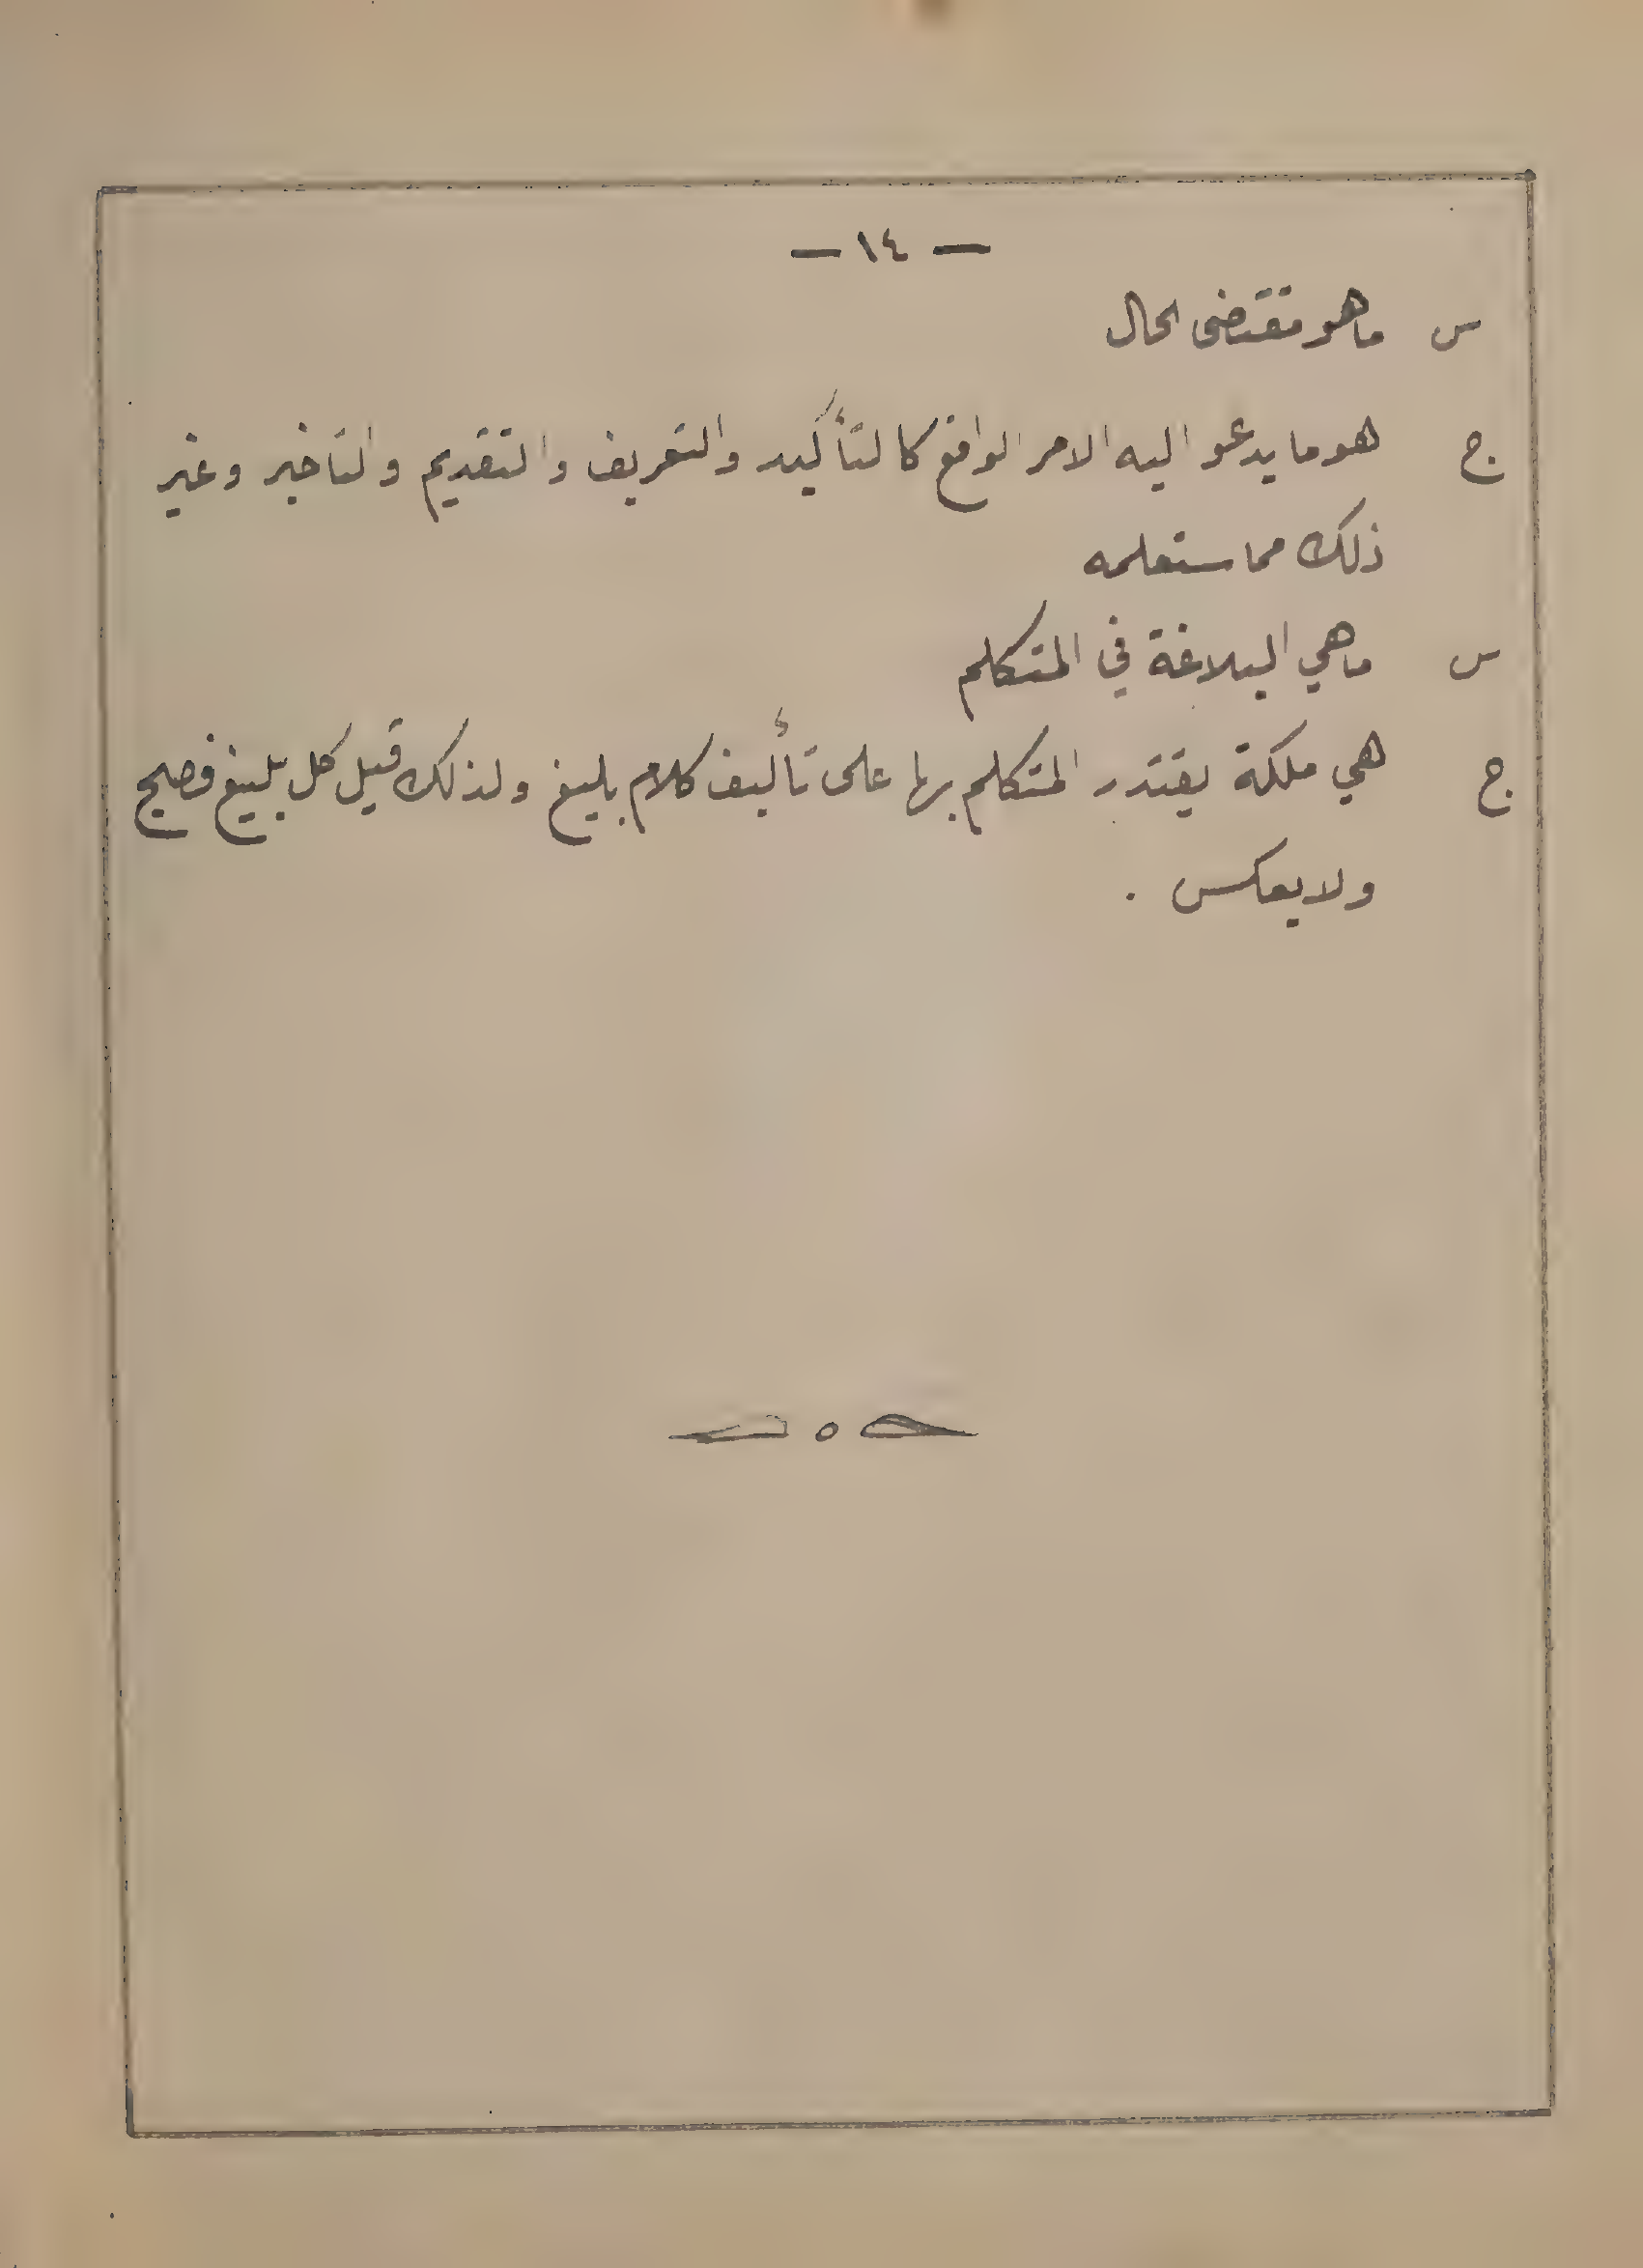 — ١٤ —
س ما هو مقتضى الحال
ج هو ما يدعو اليه الامر الواقع كالتأكيد والتعريف والتقديم والتاخير وغير
ذلك مما ستعلمه
س ما هي البلاغة في المتكلم
ج هي ملكة يقتدر المتكلم بها على تأليف كلام بليغ ولذلك قيل كل بليغ فصيح
ولا يعكس .